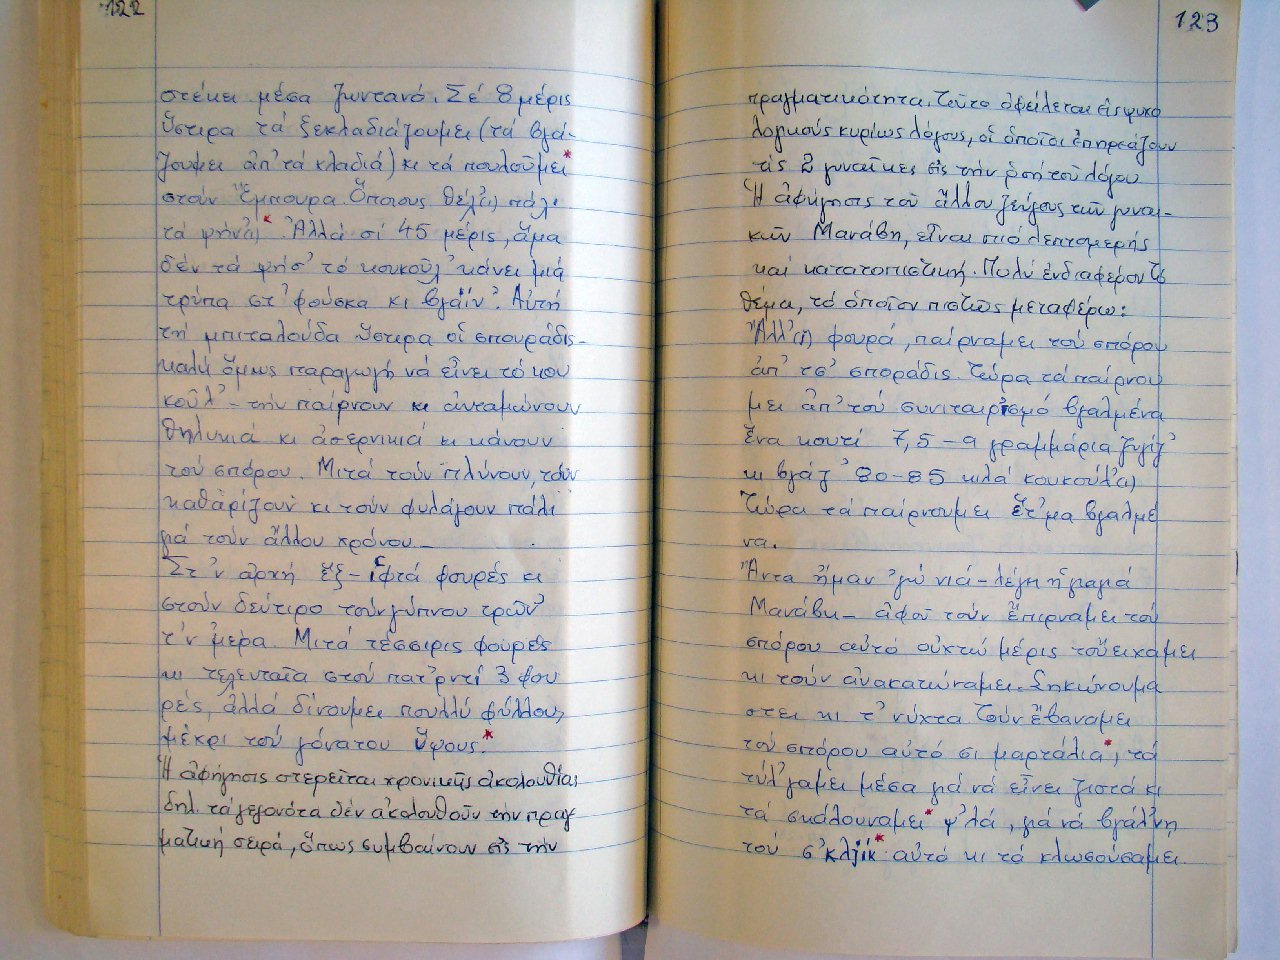 122
στέκει μέσα ζωντανό. Σέ 8 μέρις
ὕστιρα τά ξεκλαδιάζουμει (τά βγά-
ζουμει ἀπ' τά κλαδιά) κι τά πουλοῦμει*
στούν Ἔμπουρα. Ὅποιους θέλ'(ι) πάλι
τά ψήν'(ι)* Ἀλλά σί 45 μέρις, ἅμα
δέν τά ψήσ' τό κουκούλ' κάνει μιά
τρύπα στ' φούσκα κι βγαίν'. Αὐτή
τή μπιταλούδα ὕστιρα οἱ σπουράδις-
καλή ὅμως παραγωγή νά εἶνει τό κου
κοῦλ' - τήν παίρνουν κι ἀνταμώνουν
θηλυκιά κι ἀσερνικιά κι κάνουν
τού σπόρου. Μιτά τούν πλύνουν, τούν
καθαρίζουν κι τούν φυλάγουν πάλι
γιά τούν ἄλλου χρόνου.-
Στ'ν ἀρχή ἕξ-ἑφτά φουρές κι
στούν δεύτιρο τούν γύπνου τρῶν'
τ'ν ἡμέρα. Μιτά τέσσιρις φουρές
κι τελευταῖα στού πατ'ρντί 3 φου
ρές, ἀλλά δίνουμει πουλλύ φύλλου,
μέχρι τού γόνατου ὕψους.*
Ἡ ἀφήγησις στερεῖται χρονικῆς ἀκολουθίας
δηλ. τά γεγονότα δέν ἀκολουθοῦν τήν πραγ
ματική σειρά, ὅπως συμβαίνουν εἰς τήν
123
πραγματικότητα. Τοῦτο ὀφείλεται εἰς ψυχο
λογικούς κυρίως λόγους, οἱ ὁποῖοι ἐπηρεάζουν
τίς 2 γυναῖκες εἰς τήν ροή τοῦ λόγου.
Ἡ ἀφήγησις τοῦ ἄλλου ζεύγους τῶν γυναι-
κῶν Μανάβη, εἶναι πιό λεπτομερής
καί κατατοπιστική. Πολύ ἐνδιαφέρον τό
θέμα, τό ὁποῖον πιστῶς μεταφέρω:
Ἄλλ'(η) φουρά, παίρναμει τού σπόρου
ἀπ' τσ' σποράδις. Τώρα τά παίρνου
μει ἀπ' τού συνιταιρισμό βγαλμένα
ἕνα κουτί 7,5-9 γραμμάρια ζυγίζ'
κι βγάζ' 80-85 κιλά κουκούλ'(ι)
Τώρα τά παίρνουμει ἕτ'μα βγαλμέ
να.
Ἄντα ἤμαν 'γώ νιά-λέγη ἡ γιαγιά
Μανάβη- ἀφοῦ τούν ἔπιρναμει τού
σπόρου αὐτό οὐχτώ μέρις τοὔειχαμει
κι τούν ἀνακατώναμει. Σηκώνουμα
στει κι τ' νύχτα τούν ἔβαναμει
τού σπόρου αὐτό σι μαρτάλια*, τά
τύλ'γαμει μέσα γιά νά εἶνει ζιστά κι
τά σκάλουναμει* ψ'λά, γιά νά βγάλ'νη
τού σ'κλήκ'* αὐτό κι τά κλωσούσαμει.